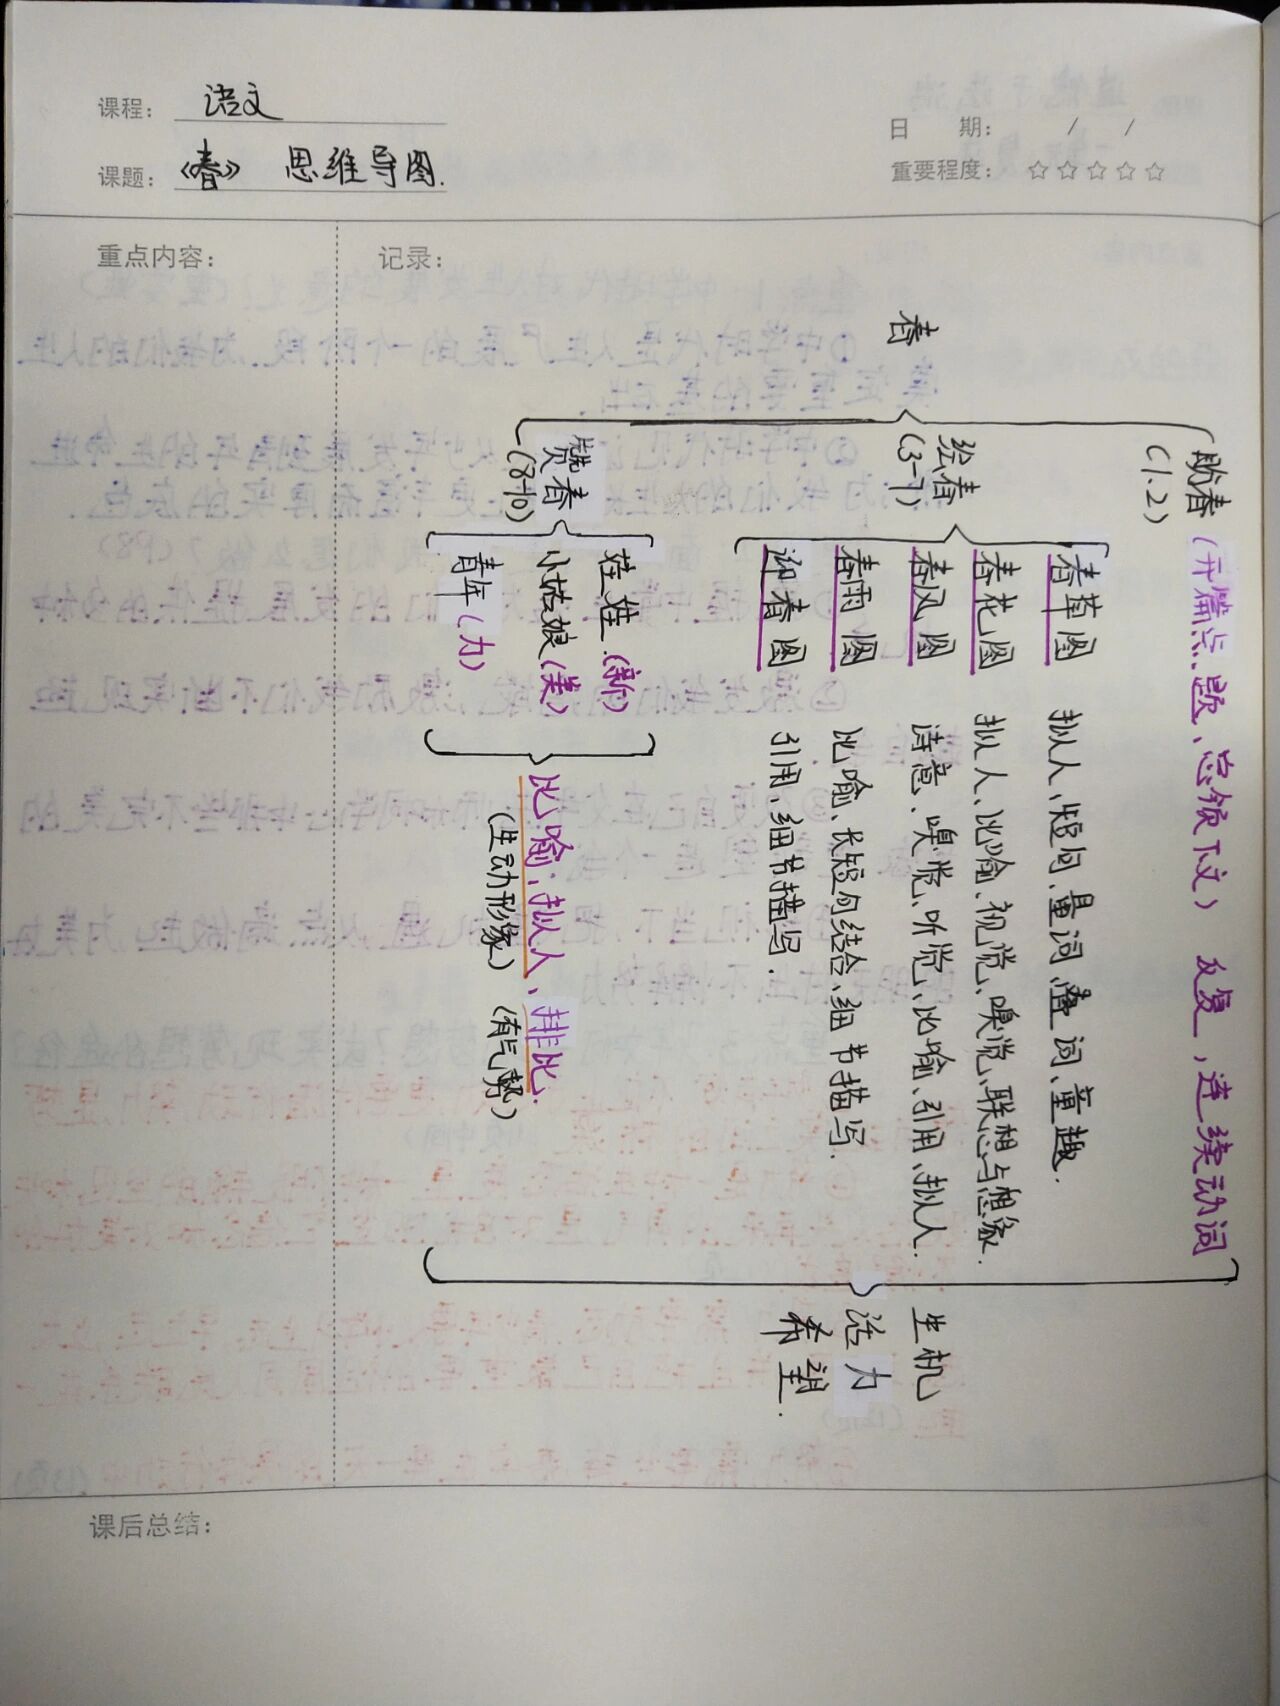 课程: 语文
课题: 《春》 思维导图.
日 期: / /
重要程度: ☆☆☆☆☆
重点内容:
记录:
春
盼春
(1.2)
(开篇点题、总领下文) 反复,连续动词
绘春
(3-7)
春草图 拟人、短句、量词、叠词、童趣.
春花图 拟人、比喻、视觉、嗅觉、联想与想象.
春风图 诗意、嗅觉、听觉、比喻、引用、拟人.
春雨图 比喻、长短句结合、细节描写.
迎春图 引用、细节描写.
赞春
(8-10)
娃娃 (新)
小姑娘 (美)
青年 (力)
比喻、拟人、排比.
(生动形象) (有气势)
生机
活力
希望.
课后总结: